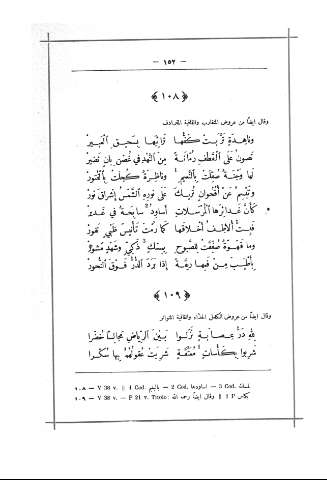 — ١٥٢ —
﴿١٠٨﴾
وقال ايضًا من عروض المتقارب والقافية المترادف
وناهدة تربت كفّها ترائبها بسحيق العبير
تصون على القطف رمّانة من النهد في غصن بان نضير
لها وجنة
وناظرة كحلت بالفتور
وتبسم عن أقحوان تريك على نوره الشمس إشراق نور
كأنّ غدائرها المرسلات أساود سابحة في غدير
فبت ألاطف أخلاقها كما رمت تأنيس ظبي نفور
وما قهوة صفّقت للصبوح بمسك ذكيّ وشهد مشور
بأطيب من فمها ريقة إذا برد الدرّ فوق النحور
﴿١٠٩﴾
وقال ايضًا من عروض الكامل الحذّاء والقافية المتواتر
لله درّ عصابة نزلوا بين الرياض مجالسا خضرا
شربوا بكاسات معتّقة شربت عقولهم بها سكرا
١٠٨ — V 38 v. ‖ 1 Cod. بالنعم — 2 Cod. اساودها — 3 Cod.
١٠٩ — V 38 v. — P 21 v. Titolo: وقال ايضا رحمه الله ‖ 1 P بكاس